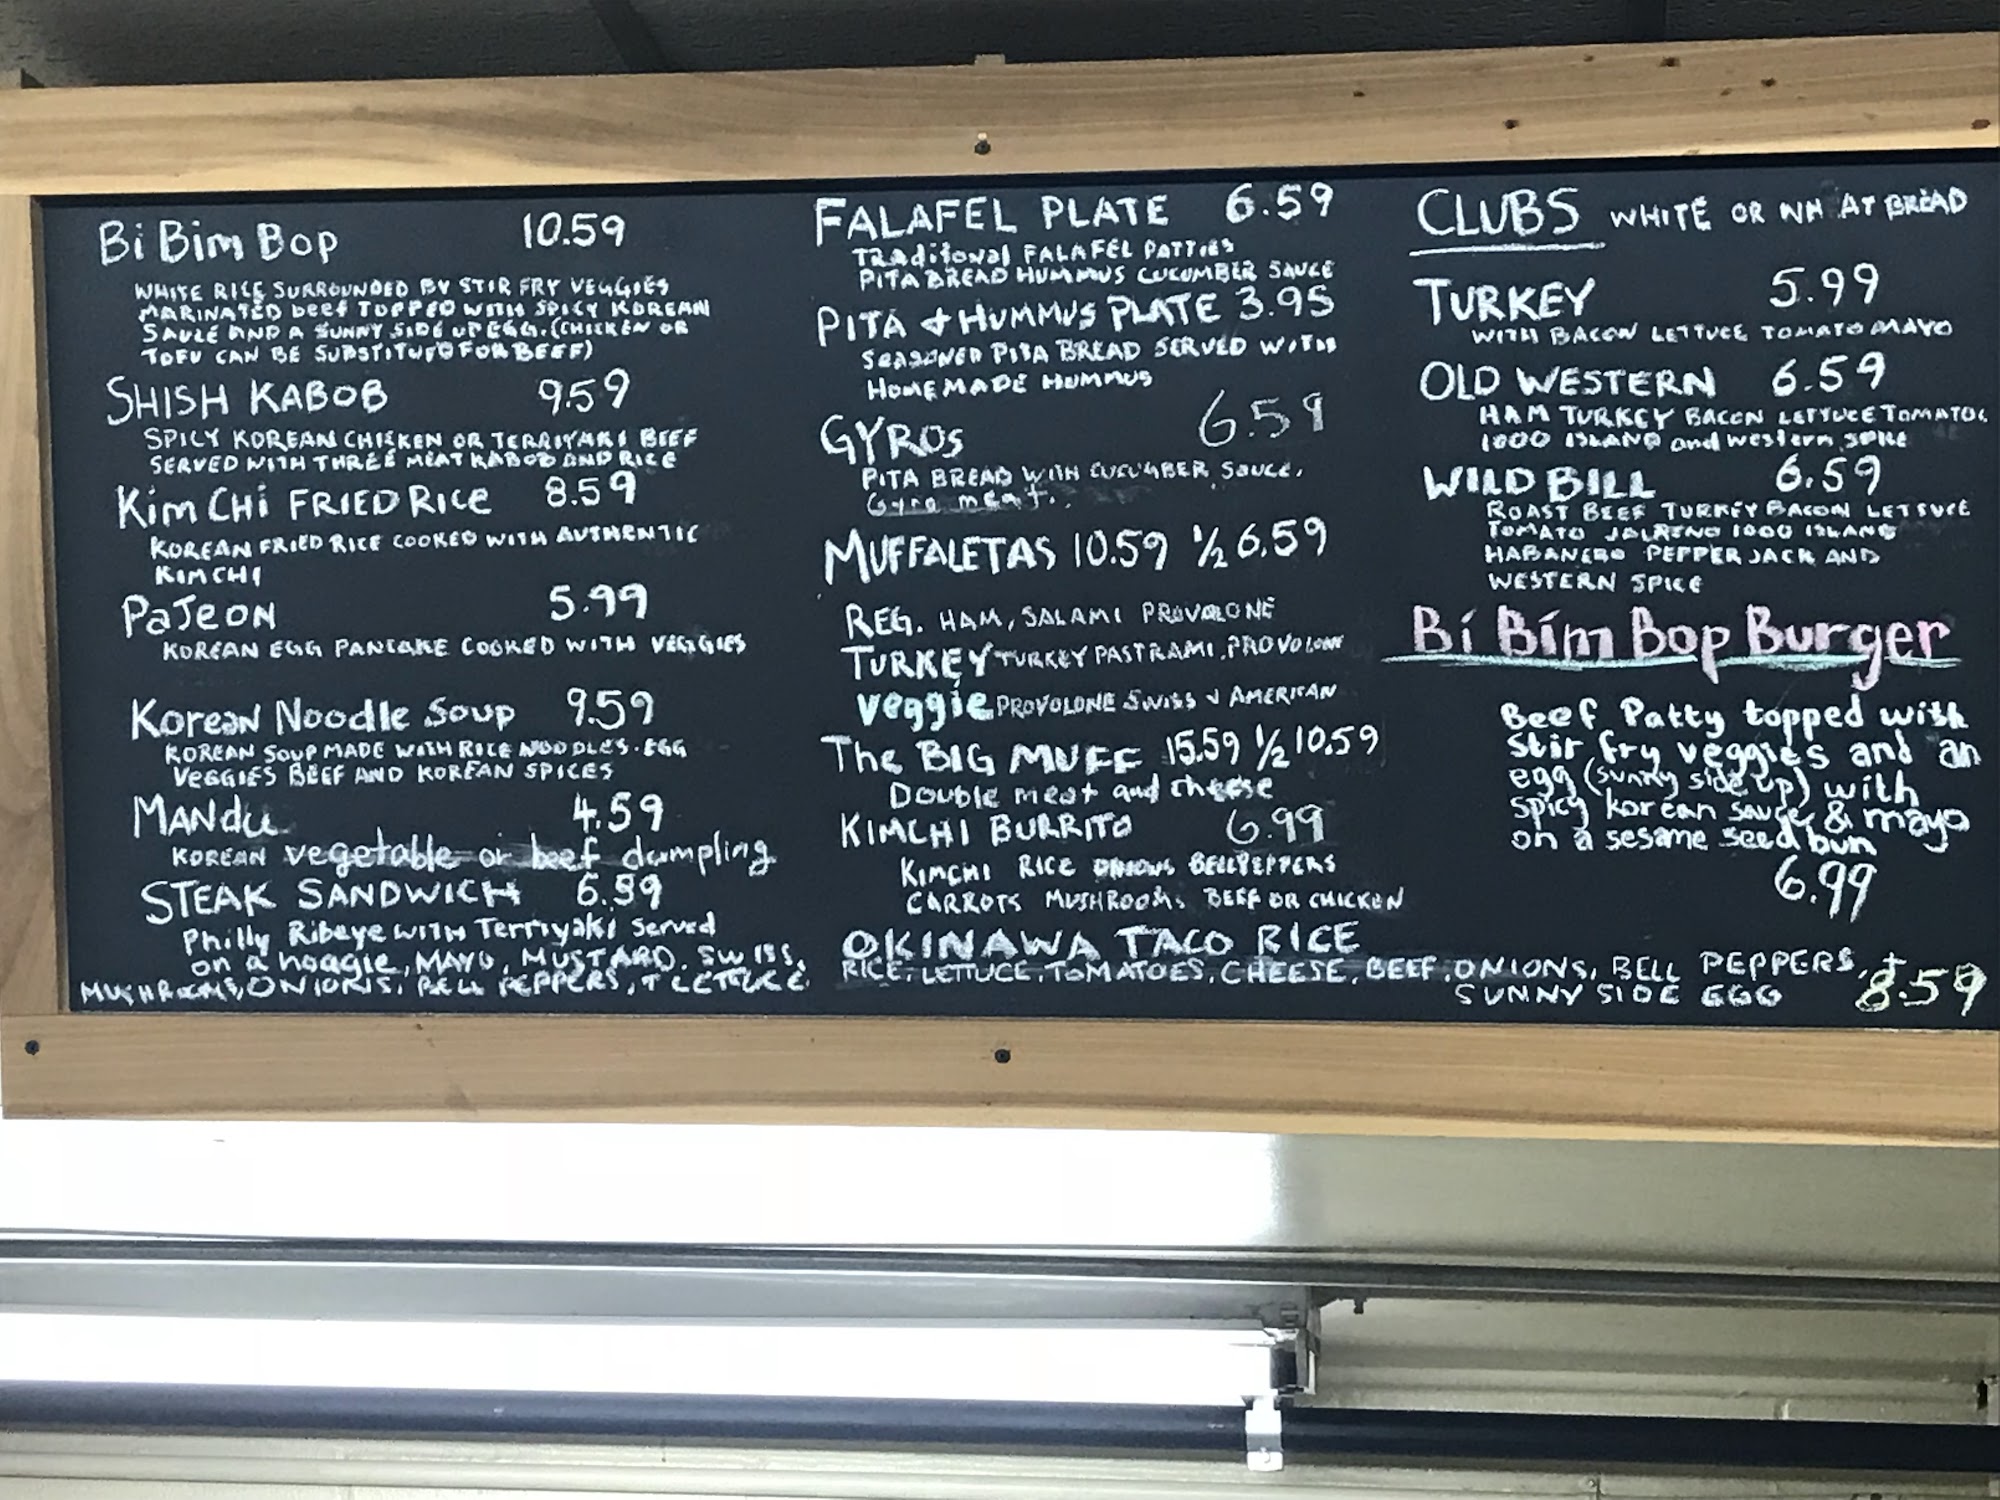 Bi Bim Bop 10.59
WHITE RICE SURROUNDED BY STIR FRY VEGGIES
MARINATED beef TOPPED WITH SPICY KOREAN
SAUCE AND A SUNNY SIDE UP EGG. (CHICKEN OR
TOFU CAN BE SUBSTITUED FOR BEEF)
SHISH KABOB 9.59
SPICY KOREAN CHICKEN OR TERRIYAKI BEEF
SERVED WITH THREE MEAT KABOB AND RICE
Kim CHi FRIED RICE 8.59
KOREAN FRIED RICE COOKED WITH AUTHENTIC
KIMCHI
PaJeon 5.99
KOREAN EGG PANCAKE COOKED WITH VEGGIES
Korean Noodle Soup 9.59
KOREAN SOUP MADE WITH RICE NOODLES. EGG
VEGGIES BEEF AND KOREAN SPICES
MANdu 4.59
KOREAN vegetable or beef dumpling
STEAK SANDWICH 6.59
Philly Ribeye WITH Terriyaki Served
on a hoagie, MAYO, MUSTARD, SWISS,
MUSHROOMS, ONIONS, BELL PEPPERS, + LETTUCE
FALAFEL PLATE 6.59
TRADitional FALAFEL PATTIES
PITA BREAD HUMMUS CUCUMBER SAUCE
PITA + HUMMUS PLATE 3.95
SEASONED PITA BREAD SERVED WITH
HOMEMADE HUMMUS
GYROS 6.59
PITA BREAD WITH CUCUMBER SAUCE.
Gyro meat.
MUFFALETAS 10.59 ½ 6.59
REG. HAM, SALAMI PROVOLONE
TURKEY TURKEY PASTRAMI, PROVOLONE
veggie PROVOLONE SWISS + AMERICAN
The BIG MUFF 15.59 ½ 10.59
DOUBLE meat and cheese
KIMCHI BURRITO 6.99
KIMCHI RICE ONIONS BELLPEPPERS
CARROTS MUSHROOMS BEEF OR CHICKEN
OKINAWA TACO RICE
RICE, LETTUCE, TOMATOES, CHEESE, BEEF, ONIONS, BELL PEPPERS, +
SUNNY SIDE EGG 8.59
CLUBS WHITE OR WHEAT BREAD
TURKEY 5.99
WITH BACON LETTUCE TOMATO MAYO
OLD WESTERN 6.59
HAM TURKEY BACON LETTUCE TOMATOE
1000 ISLAND and western spice
WILD BILL 6.59
ROAST BEEF TURKEY BACON LETTUCE
TOMATO 1000 ISLAND
HABANERO PEPPER JACK AND
WESTERN SPICE
Bi Bim Bop Burger
Beef Patty topped with
stir fry veggies and an
egg (sunny side up) with
spicy korean sauce & mayo
on a sesame seed bun
6.99